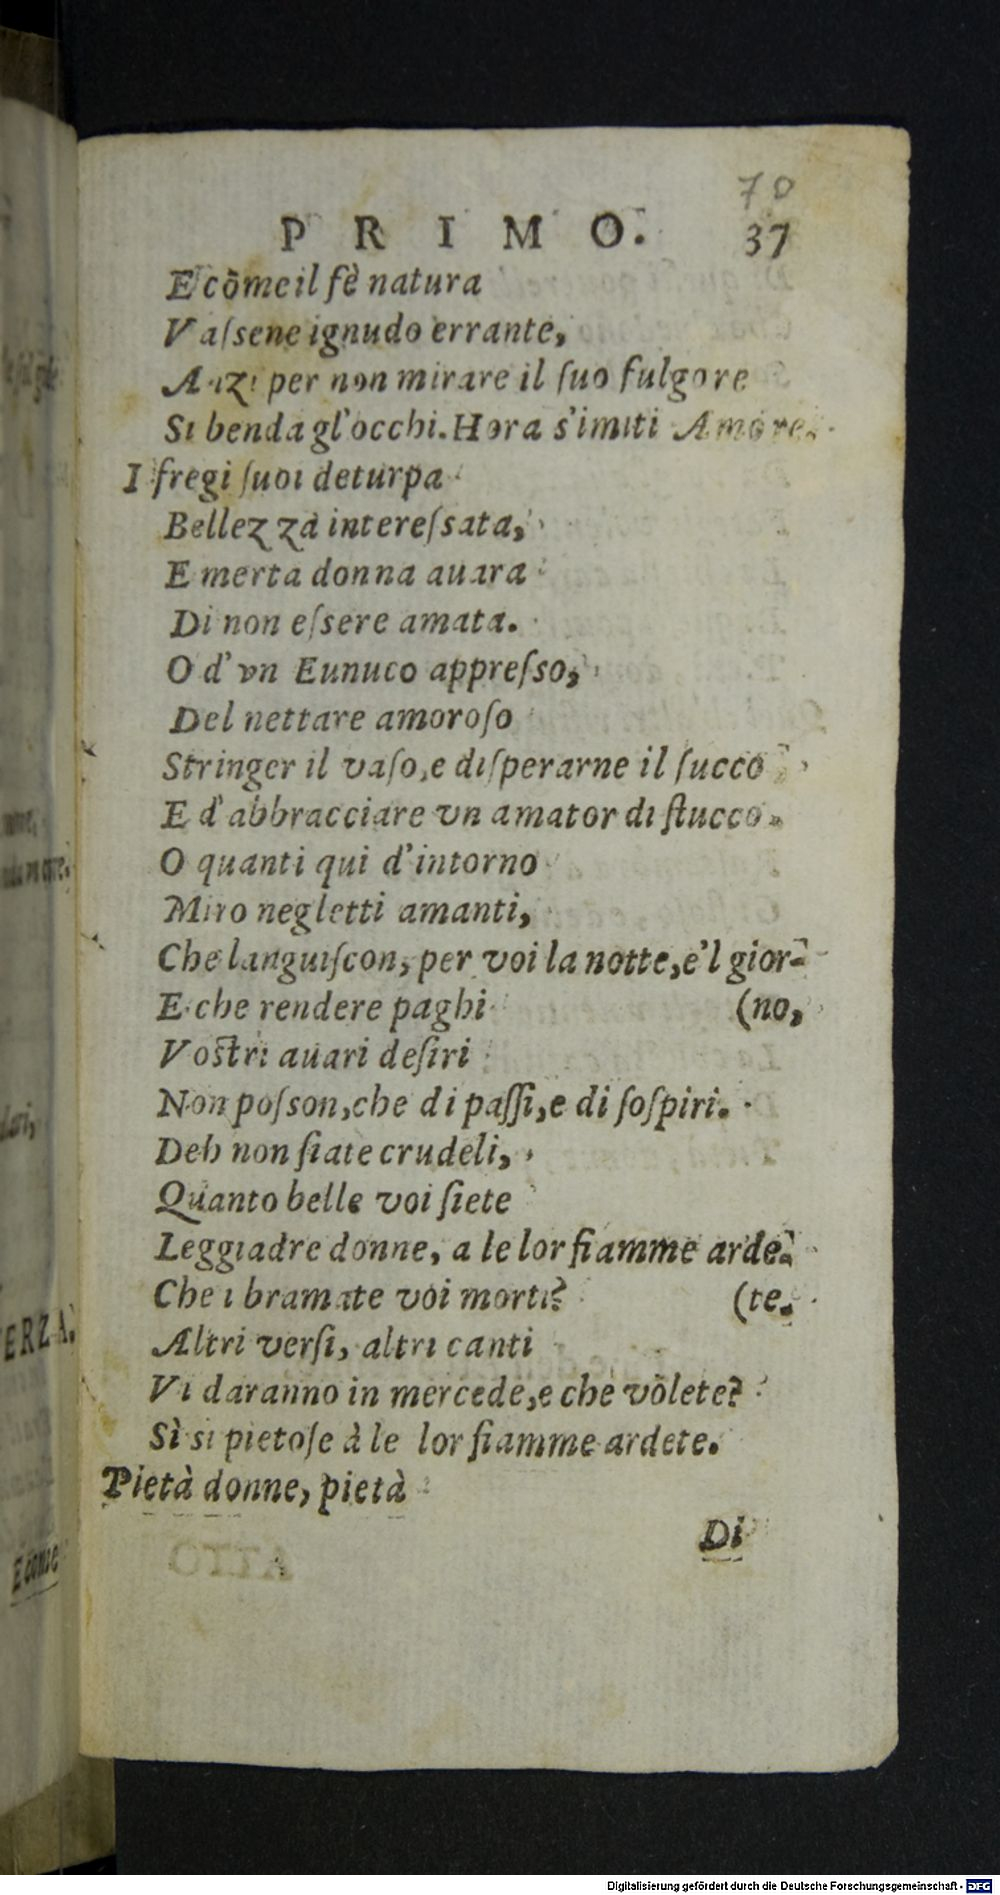 70
PRIMO. 37
E còme il fè natura
Vaſsene ignudo errante,
Anzi per non mirare il ſuo fulgore
Si benda gl'occhi. Hora s'imiti Amore.
I fregi ſuoi deturpa
Bellezza intereſsata,
E merta donna auara
Di non eſsere amata.
O d'vn Eunuco appreſso,
Del nettare amoroſo
Stringer il vaſo, e diſperarne il ſucco
E d'abbracciare vn amator di ſtucco.
O quanti qui d'intorno
Miro negletti amanti,
Che languiſcon, per voi la notte, e'l gior-
E che rendere paghi (no,
Voſtri auari deſiri
Non poſson, che di paſſi, e di ſoſpiri.
Deh non ſiate crudeli,
Quanto belle voi ſiete
Leggiadre donne, a le lor fiamme arde-
Che i bramate voi morti? (te.
Altri verſi, altri canti
Vi daranno in mercede, e che volete?
Sì si pietoſe à le lor fiamme ardete.
Pietà donne, pietà
Di
ERZA.
E come
Digitalisierung gefördert durch die Deutsche Forschungsgemeinschaft - DFG